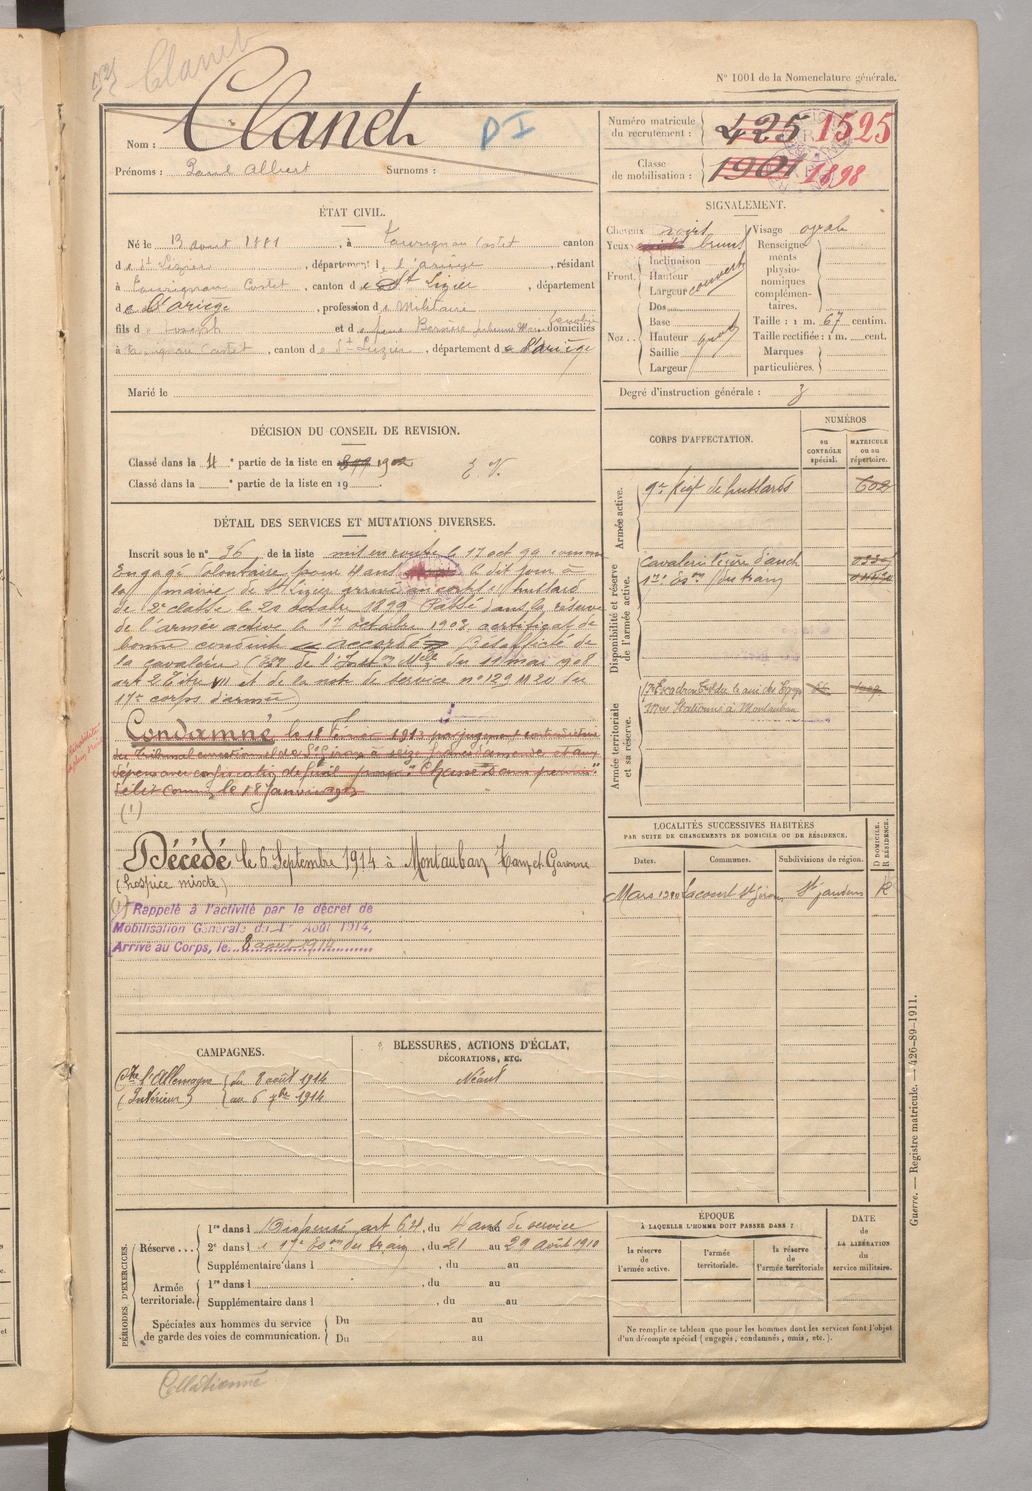 Clanet
N° 1001 de la Nomenclature générale.
Nom : Clanet
DI
Prénoms : Paul Albert Surnoms :
Numéro matricule du recrutement : 425 1525
Classe de mobilisation : 1901 1898
ÉTAT CIVIL.
Né le 13 août 1881, à Taurignan Castet canton
de St Lizier, département de l'ariège, résidant
à Taurignan Castet, canton de St Lizier, département
de l'ariège, profession de Militaire
fils de Joseph et de domiciliés
à Taurignan Castet, canton de St Lizier, département de l'ariège
Marié le
SIGNALEMENT.
Cheveux noirs Visage ovale
Yeux bruns Renseignements physionomiques complémentaires.
Front. Inclinaison
Hauteur
Largeur couvert
Nez .. Dos
Base
Hauteur
Saillie
Largeur
Taille : 1 m. 67 centim.
Taille rectifiée : 1 m. cent.
Marques particulières.
Degré d'instruction générale : 3
DÉCISION DU CONSEIL DE REVISION.
Classé dans la 4e partie de la liste en 1902
E. V.
Classé dans la e partie de la liste en 19 .
DÉTAIL DES SERVICES ET MUTATIONS DIVERSES.
Inscrit sous le n° 36 de la liste mis en route le 17 oct 99 comme
Engagé Volontaire pour 4 ans le dit jour à
la mairie de St Lizier arrivé au corps hussard
de 2e classe le 20 octobre 1899 Passé dans la réserve
de l'armée active le 1er octobre 1903, certificat de
bonne conduite accordé Désaffecté de
la cavalerie (Con de l'Instron Mlle du 11 mai 908
art 2 Titre VII et de la note de service n° 129 M 20 du
17e corps d'armée)
Condamné le 18 Février 1913 par jugement contradictoire
du Tribunal correctionnel de St Girons à seize francs d'amende et aux
dépens avec confiscation du fusil pour "Chasse sans permis".
Délit commis le 18 Janvier 1913
(1)
Décédé le 6 Septembre 1914 à Montauban Tarn et Garonne
(hospice mixte)
(1) Rappelé à l'activité par le décret de
Mobilisation Générale du 1er Août 1914,
Arrivé au Corps, le 8 août 1914
CORPS D'AFFECTATION.
NUMÉROS
au CONTRÔLE spécial.
MATRICULE ou au répertoire.
Armée active.
9e Regt de hussards 602
Disponibilité et réserve de l'armée active.
Cavalerie légère d'auch
17e Eson du train
Armée territoriale et sa réserve.
17e Escadron Tal du train des Eqges
Mres Stationné à Montauban
LOCALITÉS SUCCESSIVES HABITÉES
PAR SUITE DE CHANGEMENTS DE DOMICILE OU DE RÉSIDENCE.
Dates. Communes. Subdivisions de région. D DOMICILE. R RÉSIDENCE.
Mars Lacourt St Girons St gaudens R
CAMPAGNES.
Ctre l'Allemagne du 8 août 1914
(Intérieur) au 6 7bre 1914
BLESSURES, ACTIONS D'ÉCLAT,
DÉCORATIONS, ETC.
Néant
PÉRIODES D'EXERCICES.
Réserve ... 1re dans l Dispensé art 64, du 4 ans de service
2e dans l e 17e Eson du train, du 21 au 29 août 1910
Supplémentaire dans l , du au
Armée territoriale. 1re dans l , du au
Supplémentaire dans l , du au
Spéciales aux hommes du service de garde des voies de communication. Du au
Du au
ÉPOQUE
À LAQUELLE L'HOMME DOIT PASSER DANS :
la réserve de l'armée active.
l'armée territoriale.
la réserve de l'armée territoriale
DATE de LA LIBÉRATION du service militaire.
Ne remplir ce tableau que pour les hommes dont les services font l'objet
d'un décompte spécial (engagés, condamnés, omis, etc.).
Guerre. — Registre matricule. — 426-89-1911.
Collationné